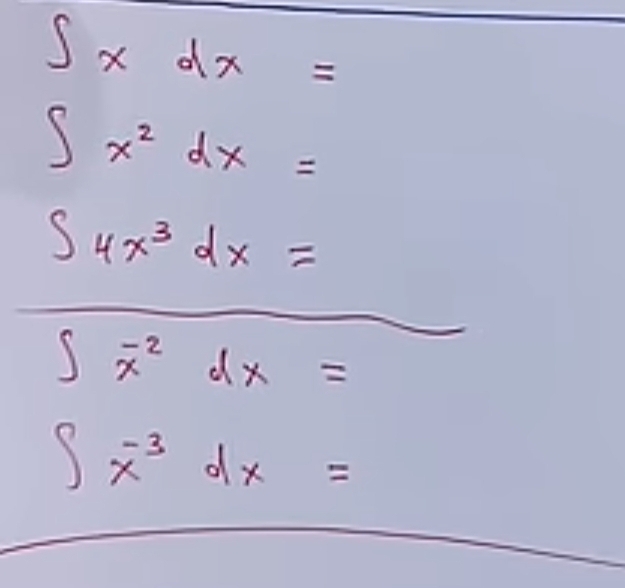 ∫ x dx =
∫ x² dx =
∫ 4x³ dx =
∫ x⁻² dx =
∫ x⁻³ dx =